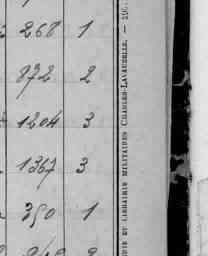 268 1
872 2
1204 3
1367 3
350 1
RIE ET LIBRAIRIE MILITAIRES CHARLES-LAVAUZELLE. —